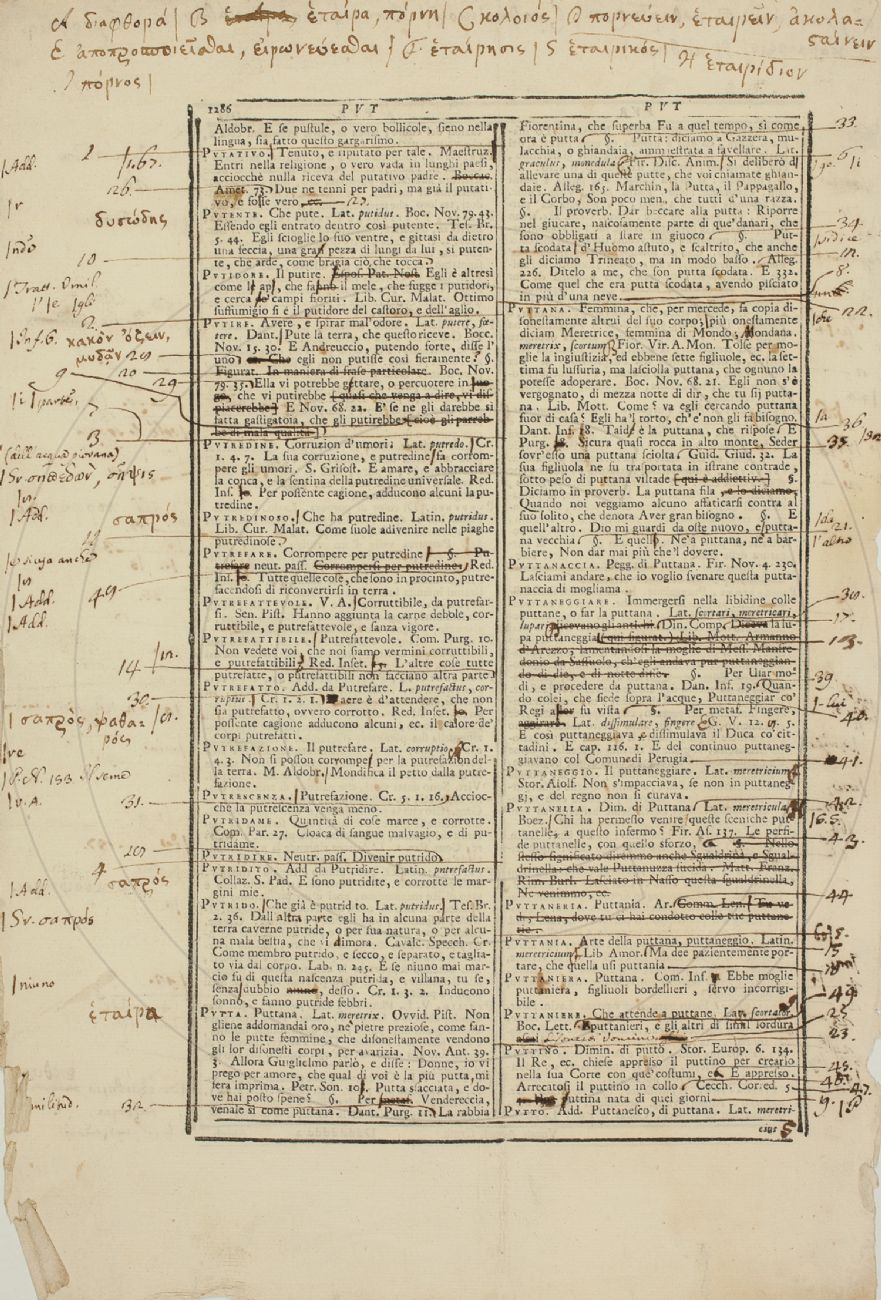 A διαφθορά | B ἑταίρα, πόρνη | C κολοιός | D πορνεύειν, ἑταιρεῖν, ἀκολα-
σαίνειν
E ἀποπροσποιεῖσθαι, εἰρωνεύεσθαι | F ἑταίρησις | G ἑταιρικός |
H ἑταιρίδιον
I πόρνος |
1286 PUT PUT
Aldobr. E se pustule, o vero bollicole, sieno nella
lingua, sia fatto questo gargarismo.
PUTATIVO. Tenuto, e riputato per tale. Maestruz.
Entri nella religione, o vero vada in lunghi paesi,
acciocchè nulla riceva del putativo padre. Boccac.
Amet. 73. Due ne tenni per padri, ma già il putati-
vo, e fosse vero ec.
PUTENTE. Che pute. Lat. putidus. Boc. Nov. 79. 43.
Essendo egli entrato dentro così putente. Tes. Br.
5. 44. Egli scioglie lo suo ventre, e gittasi da dietro
una feccia, una gran pezza di lungi da lui, si puten-
te, che arde, come bragia ciò, che tocca.
PUTIDORE. Il putire. Espos. Pat. Nost. Egli è altresì
come le api, che fanno il mele, che fugge i putidori,
e cerca le campi fioriti. Lib. Cur. Malat. Ottimo
suffumigio si è il putidore del castoro, e dell'aglio.
PUTIRE. Avere, e spirar mal'odore. Lat. putere, fœ-
tere. Dant. Pute la terra, che questo riceve. Bocc.
Nov. 15. 30. E Andreuccio, putendo forte, disse l'
uno: Che egli non putisse così fieramente. §.
Figurat. In maniera di frase particolare. Bocc. Nov.
79. 35. Ella vi potrebbe gittare, o percuotere in luo-
go, che vi putirebbe (quasi che venga a dire, vi dis-
piacerebbe) E Nov. 68. 22. E' se ne gli darebbe sì
fatta gastigatoia, che gli putirebbe (cioè gli parreb-
be di mala qualità)
PUTREDINE. Corruzion d'umori. Lat. putredo. Cr.
1. 4. 7. La sua corruzione, e putredine fa corrom-
pere gli umori. S. Grisost. E amare, e abbracciare
la conca, e la sentina della putredine universale. Red.
Ins. Per possente cagione, adducono alcuni la pu-
tredine.
PUTREDINOSO. Che ha putredine. Latin. putridus.
Lib. Cur. Malat. Come suole adivenire nelle piaghe
putredinose.
PUTREFARE. Corrompere per putredine. §. Pu-
trefare neut. pass. Corrompersi per putredine. Red.
Ins. Tutte quelle cose, che sono in procinto, putre-
facendosi di riconvertirsi in terra.
PUTREFATTEVOLE. V. A. Corruttibile, da putrefar-
si. Sen. Pist. Hanno aggiunta la carne debole, cor-
ruttibile, e putrefattevole, e sanza vigore.
PUTREFATTIBILE. Putrefattevole. Com. Purg. 10.
Non vedete voi, che noi siamo vermini corruttibili,
e putrefattibili. Red. Inset. L'altre cose tutte
putrefatte, o putrefattibili non facciano altra parte
PUTREFATTO. Add. da Putrefare. L. putrefactus, cor-
ruptus. Cr. 1. 2. 1. aere è d'attendere, che non
sia putrefatto, ovvero corrotto. Red. Inset. Per
possente cagione adducono alcuni, ec. il calore de'
corpi putrefatti.
PUTREFAZIONE. Il putrefare. Lat. corruptio. Cr. 1.
4. 3. Non si posson corrompere per la putrefazion del-
la terra. M. Aldobr. Mondifica il petto dalla putre-
fazione.
PUTRESCENZA. Putrefazione. Cr. 5. 1. 16. Accioc-
che la putrescenza venga meno.
PUTRIDAME. Quantità di cose marce, e corrotte.
Com. Par. 27. Cloaca di sangue malvagio, e di pu-
tridame.
PUTRIDIRE. Neutr. pass. Divenir putrido.
PUTRIDITO. Add da Putridire. Latin. putrefactus.
Collaz. S. Pad. E sono putridite, e corrotte le mar-
gini mie.
PUTRIDO. Che già è putrid to. Lat. putridus. Tes. Br.
2. 36. Dall'altra parte egli ha in alcuna parte della
terra caverne putride, o per sua natura, o per alcu-
na mala bestia, che vi dimora. Cavalc. Specch. Cr.
Come membro putrido, e secco, e separato, e taglia-
to via dal corpo. Lab. n. 245. E se niuno mai mar-
cio fu di questa nascenza putrida, e villana, tu se',
senza dubbio niuno, desso. Cr. 1. 3. 2. Inducono
sonno, e fanno putride febbri.
PUTTA. Puttana. Lat. meretrix. Ovvid. Pist. Non
gliene addomandai oro, ne pietre preziose, come fan-
no le putte femmine, che disonestamente vendono
gli lor disonesti corpi, per avarizia. Nov. Ant. 39.
3. Allora Guiglielmo parlò, e disse: Donne, io vi
prego per amore, che qual di voi è la più putta, mi
fiera imprima. Petr. Son. 105. Putta sfacciata, e do-
ve hai posto spene? §. Per metaf. Vendereccia,
venale sì come puttana. Dant. Purg. 11. La rabbia
Fiorentina, che superba Fu a quel tempo, sì come
ora è putta §. Putta: diciamo a Gazzera, mu-
lacchia, o ghiandaia, ammaestrata a favellare. Lat.
graculus, monedula. Fir. Disc. Anim. Si deliberò di
allevare una di queste putte, che voi chiamate ghian-
daie. Alleg. 165. Marchin, la Putta, il Pappagallo,
e il Corbo, Son poco men, che tutti d'una razza.
§. Il proverb. Dar beccare alla putta: Riporre
nel giucare, nascosamente parte di que'danari, che
sono obbligati a stare in giuoco §. Put-
ta scodata d'Huomo astuto, e scaltrito, che anche
gli diciamo Trincato, ma in modo basso. Alleg.
226. Ditelo a me, che son putta scodata. E 332.
Come quel che era putta scodata, avendo pisciato
in più d'una neve.
PUTTANA. Femmina, che, per mercede, fa copia di-
sonestamente altrui del suo corpo, più onestamente
diciam Meretrice, femmina di Mondo, Mondana.
meretrix, scortum. Fior. Vir. A. Mon. Tolse per mo-
glie la ingiustizia, ed ebbene sette figliuole, ec. la set-
tima fu lussuria, ma lasciolla puttana, che ognuno la
potesse adoperare. Boc. Nov. 68. 21. Egli non s'è
vergognato, di mezza notte di dir, che tu sij putta-
na. Lib. Mott. Come? va egli cercando puttana
fuor di casa? Egli ha'l torto, ch'e' non gli fa bisogno.
Dant. Inf. 18. Taide è la puttana, che rispose E
Purg. Sicura quasi rocca in alto monte, Seder
sovr'esso una puttana sciolta Guid. Giud. 32. La
sua figliuola ne fu trasportata in istrane contrade,
sotto peso di puttana viltade (qui è addiettiv.) §.
Diciamo in proverb. La puttana fila, e lo diciamo,
Quando noi veggiamo alcuno affaticarsi contra al
suo solito, che denota Aver gran bisogno. §. E
quell'altro. Dio mi guardi da oste nuovo, e putta-
na vecchia §. E quell. Ne'a puttana, ne'a bar-
biere, Non dar mai più che'l dovere.
PUTTANACCIA. Pegg. di Puttana. Fir. Nov. 4. 230.
Lasciami andare, che io voglio svenare questa putta-
naccia di mogliama.
PUTTANEGGIARE. Immergersi nella libidine colle
puttane, o far la puttana. Lat. scortari, meretricari,
lupari dicevano gli antichi. Din. Comp. Diceva la lu-
pa puttaneggia (qui figurat.) Lib. Mott. Armanno
d'Arezzo; lamentandosi la moglie di Mess. Manfre-
donio da Sassuolo, ch'egli andava pur puttaneggian-
do di die, e di notte disse. §. Per Usar mo-
di, e procedere da puttana. Dan. Inf. 19. Quan-
do colei, che siede sopra l'acque, Puttaneggiar co'
Regi a lor fu vista §. Per metaf. Fingere,
aggirare. Lat. dissimulare, fingere. G. V. 12. 5.
E così puttaneggiava, e dissimulava il Duca co'cit-
tadini. E cap. 116. 1. E del continuo puttaneg-
giavano col Comune di Perugia
PUTTANEGGIO. Il puttaneggiare. Lat. meretricium.
Stor. Aiolf. Non s'impacciava, se non in puttaneg-
gj, e del regno non si curava.
PUTTANELLA. Dim. di Puttana. Lat. meretricula.
Boez. Chi ha permesso venire queste sceniche put-
tanelle, a questo infermo? Fir. As. 137. Le perfi-
de puttanelle, con quello sforzo, §. Nello
stesso significato diremmo anche Sgualdrina, e Sgual-
drinella: che vale Puttanuzza sucida. Matt. Franz.
Rim. Burl. Lasciato in Nasso questa sgualdrinella,
Ne venimmo, ec.
PUTTANERIA. Puttania. Ar. Comm. Len. Tu ve-
di, Lena, dove tu ci hai condotto colle tue puttane-
rie.
PUTTANIA. Arte della puttana, puttaneggio. Latin.
meretricium. Lib Amor. Ma dee pazientemente por-
tare, che quella usi puttania
PUTTANIERA. Puttana. Com. Inf. Ebbe moglie
puttaniera, figliuoli bordellieri, servo incorrigi-
bile.
PUTTANIERE. Che attende a puttane. Lat. scortator.
Boc. Lett. E puttanieri, e gli altri di simil lordura
PUTTINO. Dimin. di putto. Stor. Europ. 6. 134.
Il Re, ec. chiese appresso il puttino per crearlo
nella sua Corte con que'costumi, ec. E appresso.
Arrecatosi il puttino in collo. Cecch. Cor. ed. 5.
puttina nata di quei giorni
PUTTO. Add. Puttanesco, di puttana. Lat. meretri-
cius
| Add.
26.
δυσώδης
10
2.
κακὸν ὄζειν,
μυδᾶν 29
9 20
29
3.
(dell'acqua piovana)
σηπεδών, σῆψις
| Add.
σαπρός
49
| Add.
| Add.
14
30.
σαπρός, ψαθα-
ρός
| v. A. 31.
4.
σαπρός
| Add.
| Sv. σαπρός
| niuno
ἑταίρα
32
33.
6
34.
8.
22.
36
35.
21.
30.
17.
39
40.
41.
42.
43
44
15
49
25
23.
45
47.
9.